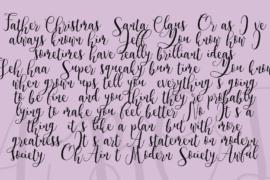 Father Christmas Santa Claus Or as I ve
always known him Jeff You know how
sometimes have really brilliant ideas
Heh haa Super squeaky bum time You know
when grown ups tell you everything s going
to be fine and you think they re probably
lying to make you feel better No It s a
thing it s like a plan but with more
greatness It s art A statement on modern
society Oh Ain t Modern Society Awful